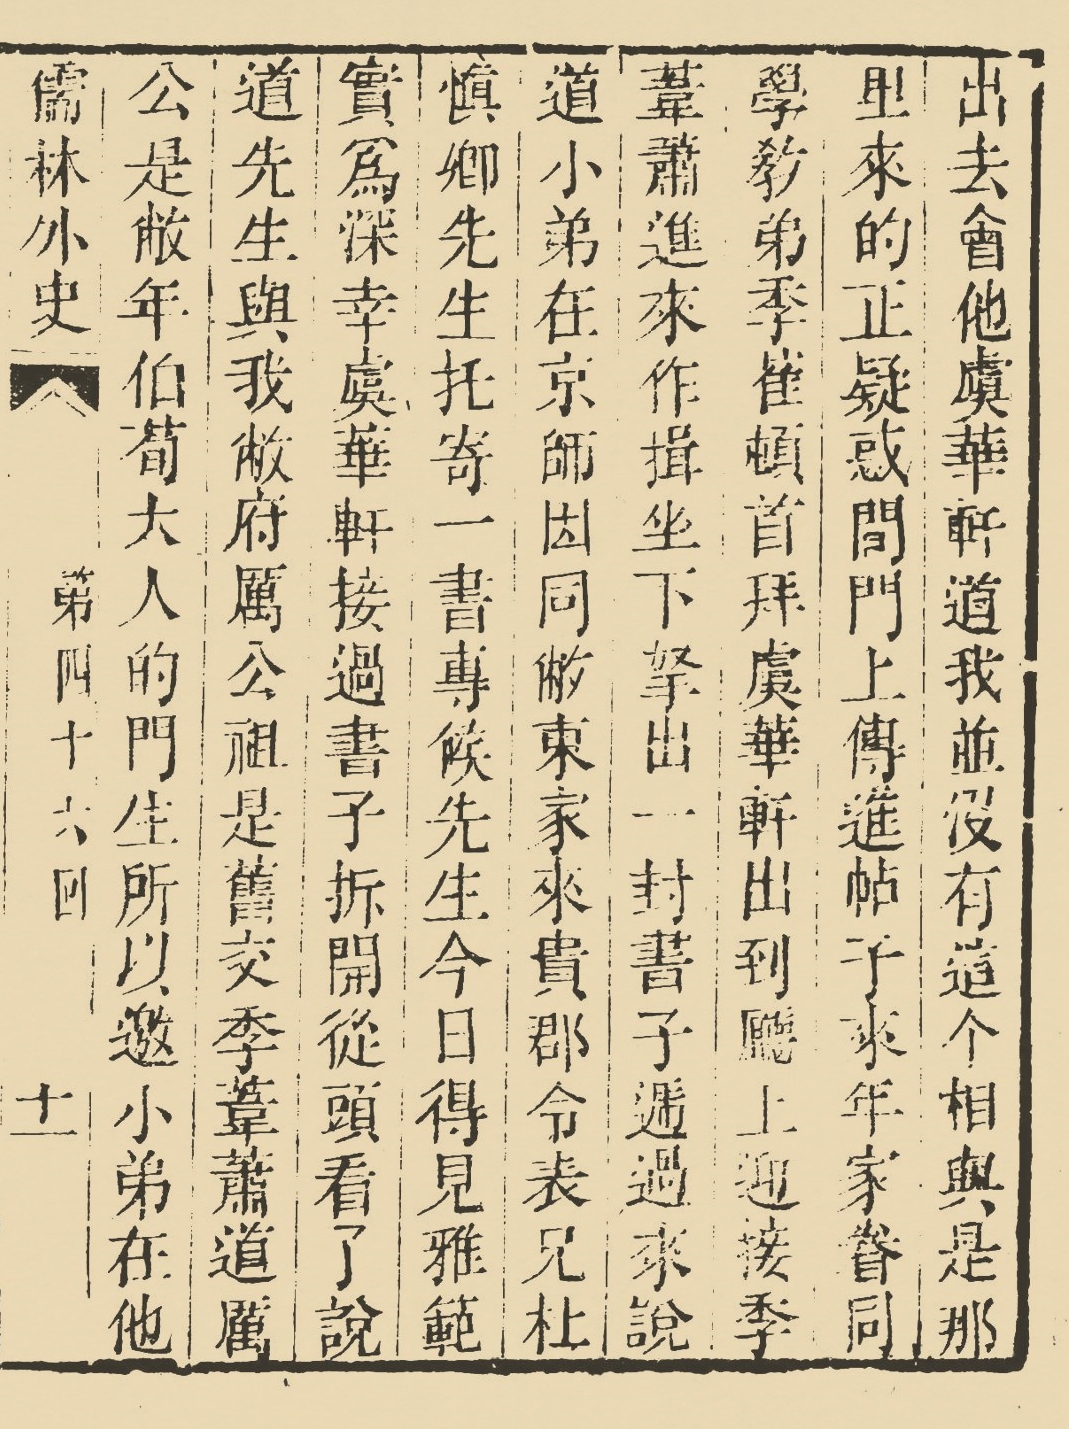 出去會他虞華軒道我並沒有這个相與是那
里來的正疑惑間門上傳進帖子來年家眷同
學教弟季崔頓首拜虞華軒出到廳上迎接季
葦蕭進來作揖坐下拏出一封書子遞過來說
道小弟在京師因同敝東家來貴郡令表兄杜
愼卿先生托寄一書專候先生今日得見雅範
實爲深幸虞華軒接過書子拆開從頭看了說
道先生與我敝府厲公祖是舊交季葦蕭道厲
公是敝年伯荀大人的門生所以邀小弟在他
儒林外史 第四十六回 十一